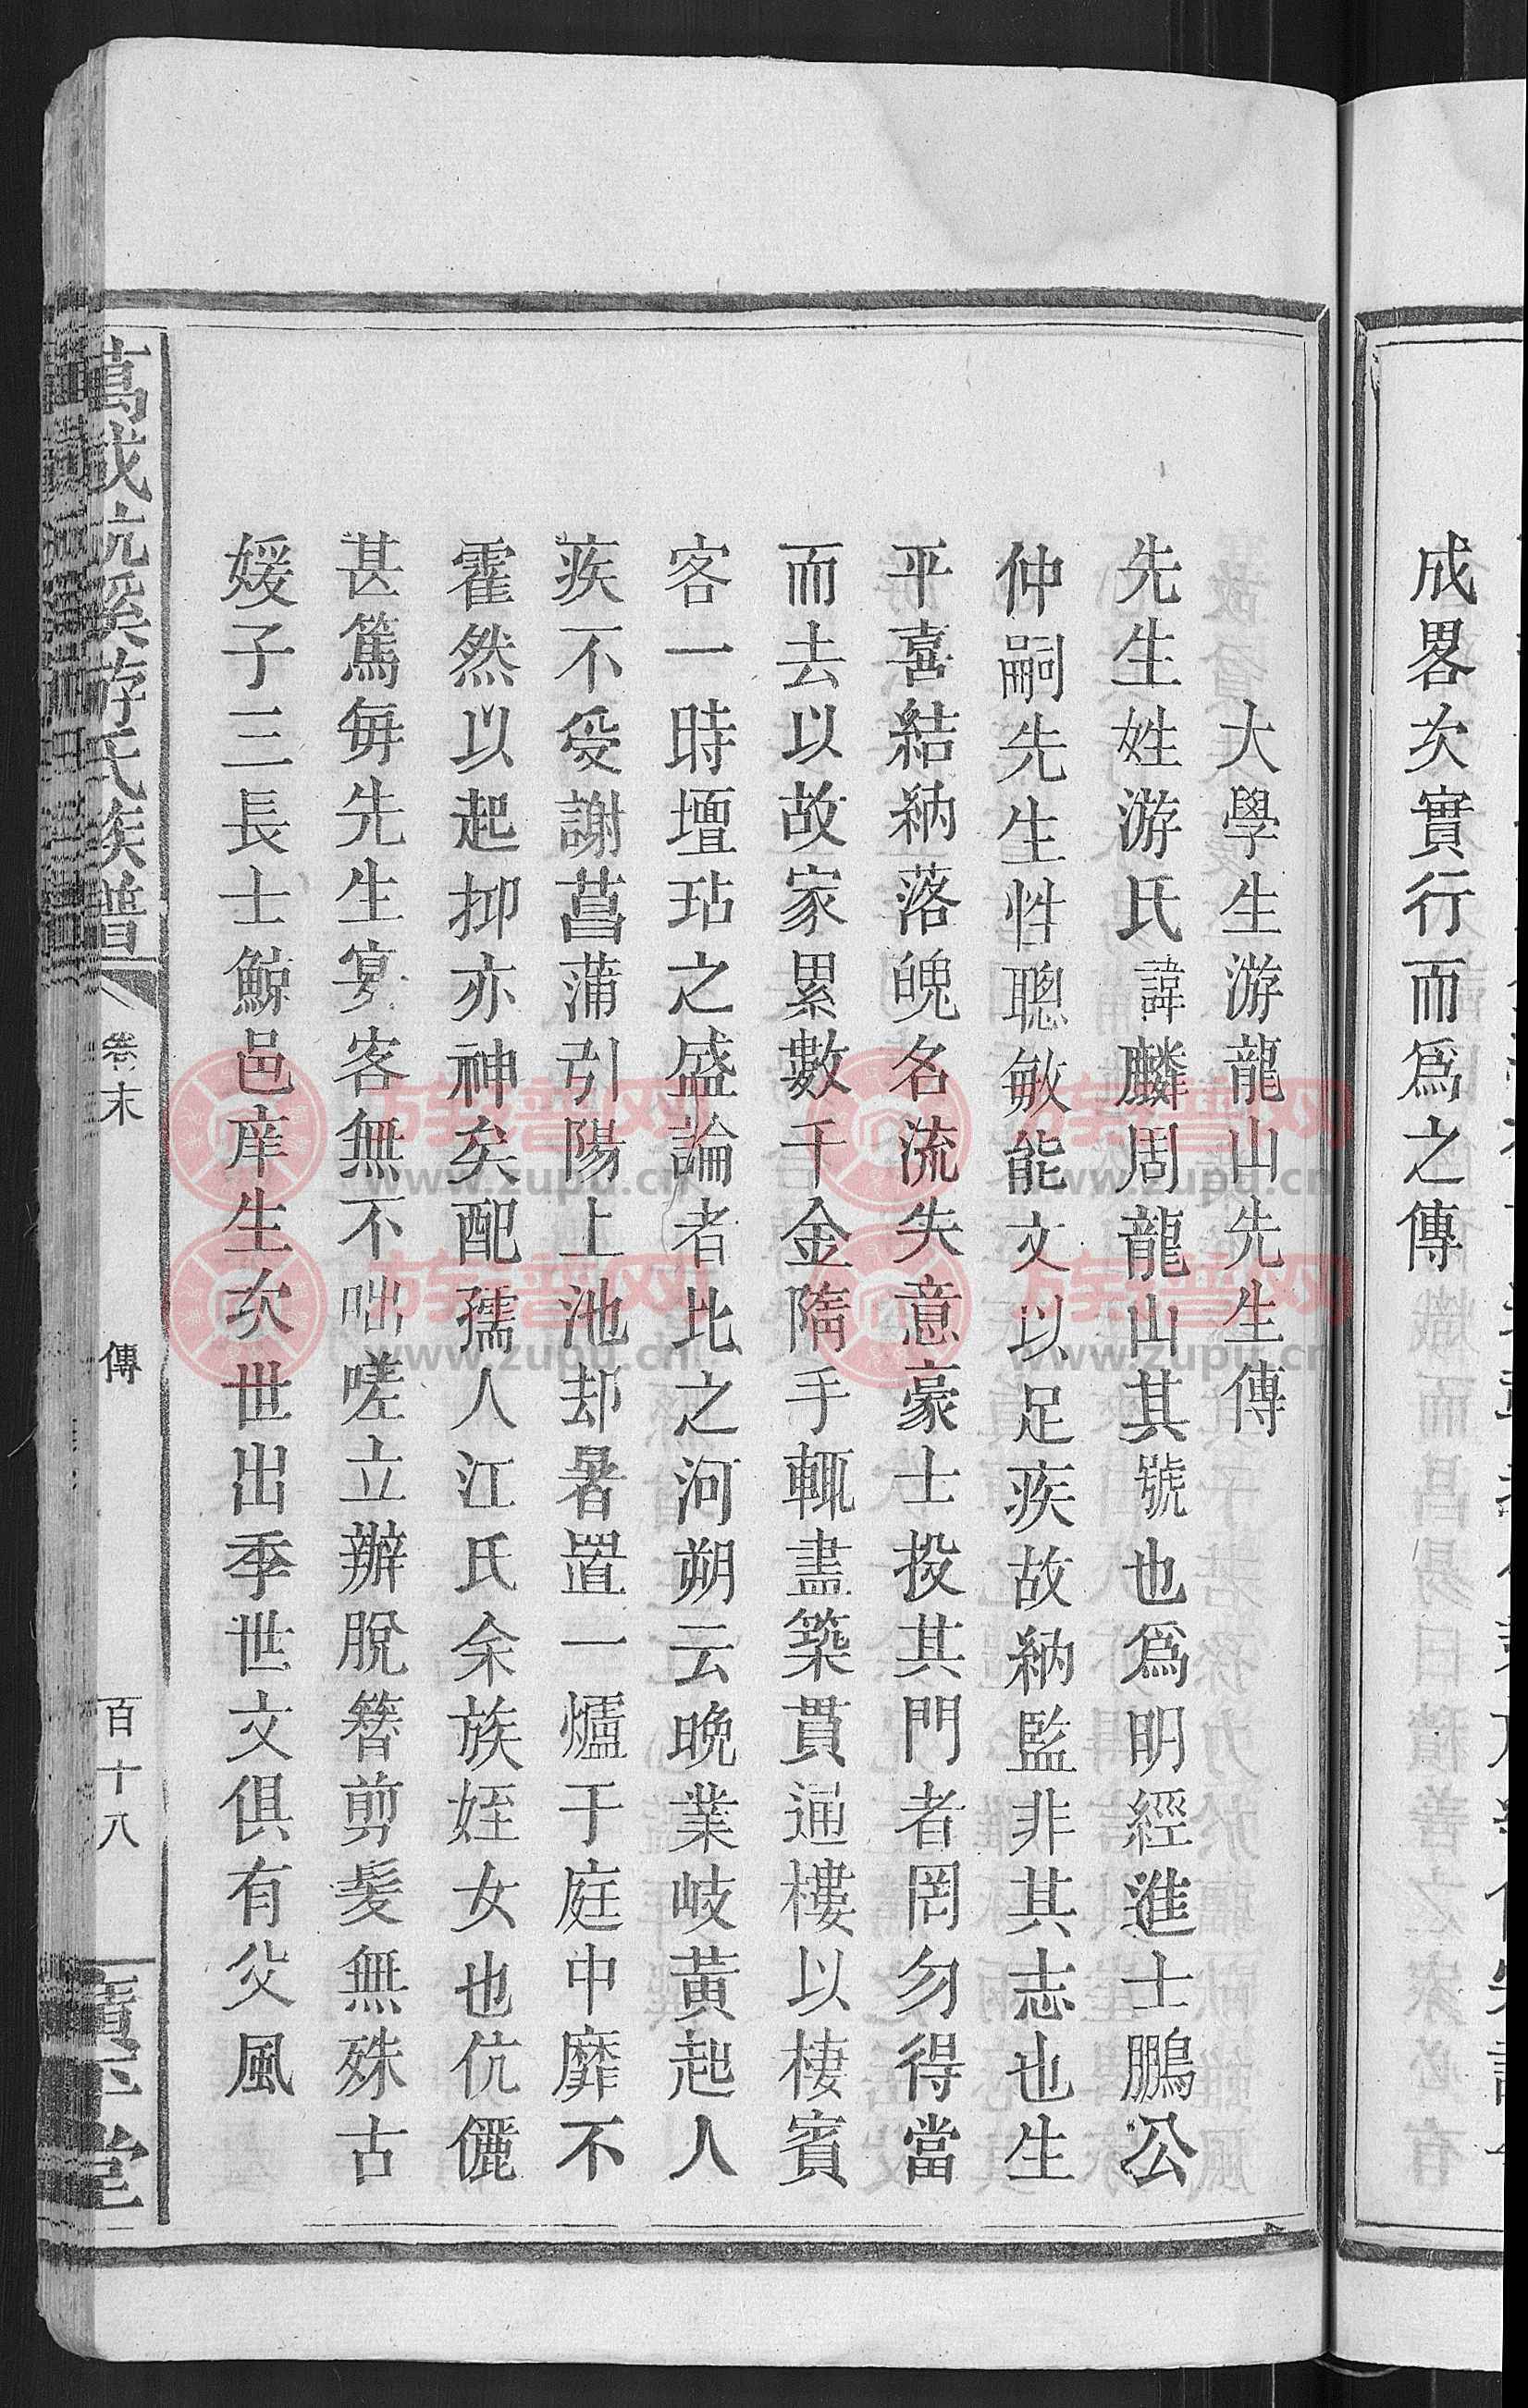 成畧次實行而爲之傳
大學生游龍山先生傳
先生姓游氏諱麟周龍山其號也爲明經進士鵬公
仲嗣先生性聰敏能文以足疾故納監非其志也生
平喜結納落魄名流失意豪士投其門者罔勿得當
而去以故家累數千金隨手輒盡築貫通樓以棲賓
客一時壇玷之盛論者比之河朔云晩業岐黃起人
疾不受謝菖蒲引陽上池却暑置一爐于庭中靡不
霍然以起抑亦神矣配孺人江氏余族姪女也伉儷
甚篤每先生宴客無不咄嗟立辦脫簪剪髮無殊古
媛子三長士鯨邑庠生次世出季世文俱有父風
游氏族譜
卷末
傳
百十八
堂
族譜网
www.zupu.cn
族譜网
www.zupu.cn
族譜网
www.zupu.cn
族譜网
www.zupu.cn